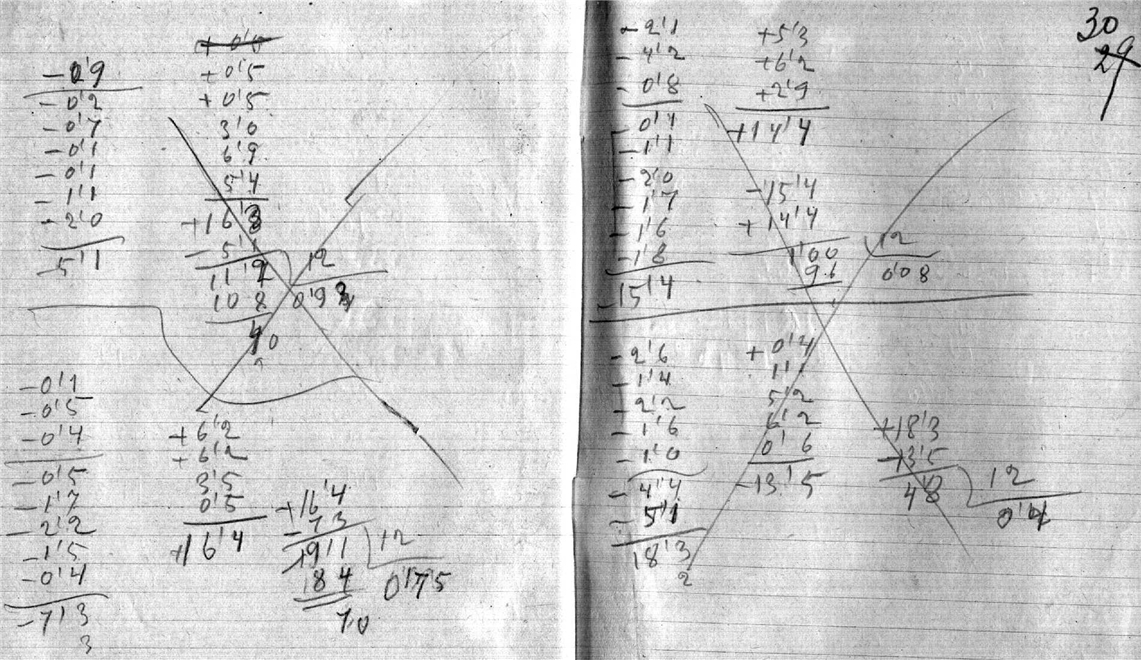 + 0'0
- 0'9
+ 0'5
- 0'2
+ 0'5
- 0'7
3'0
- 0'1
6'9
- 0'1
5'4
- 1'1
- 2'0
+ 16'3
- 5'1
- 5'1
12
10 8
- 0'1
- 0'5
- 0'4
- 0'5
- 1'7
- 2'2
- 1'5
- 0'4
- 7'3
3
+ 6'2
+ 6'2
3'5
0'5
+ 16'4
+ 16'4
- 7 3
12
0'75
18 4
30
29
- 2'1
- 4'2
- 0'8
- 0'4
- 1'1
- 2'0
- 1'7
- 1'6
- 1'8
- 15'4
+ 5'3
+ 6'2
+ 2'9
+ 14'4
- 15'4
+ 14'4
1'00
12
96
0'08
- 2'6
- 1'4
- 2'2
- 1'6
- 1'0
- 4'4
- 5'1
18'3
2
+ 0'4
1'1
5'2
6'2
0'6
- 13'5
+ 18'3
- 13'5
12
48
0'4